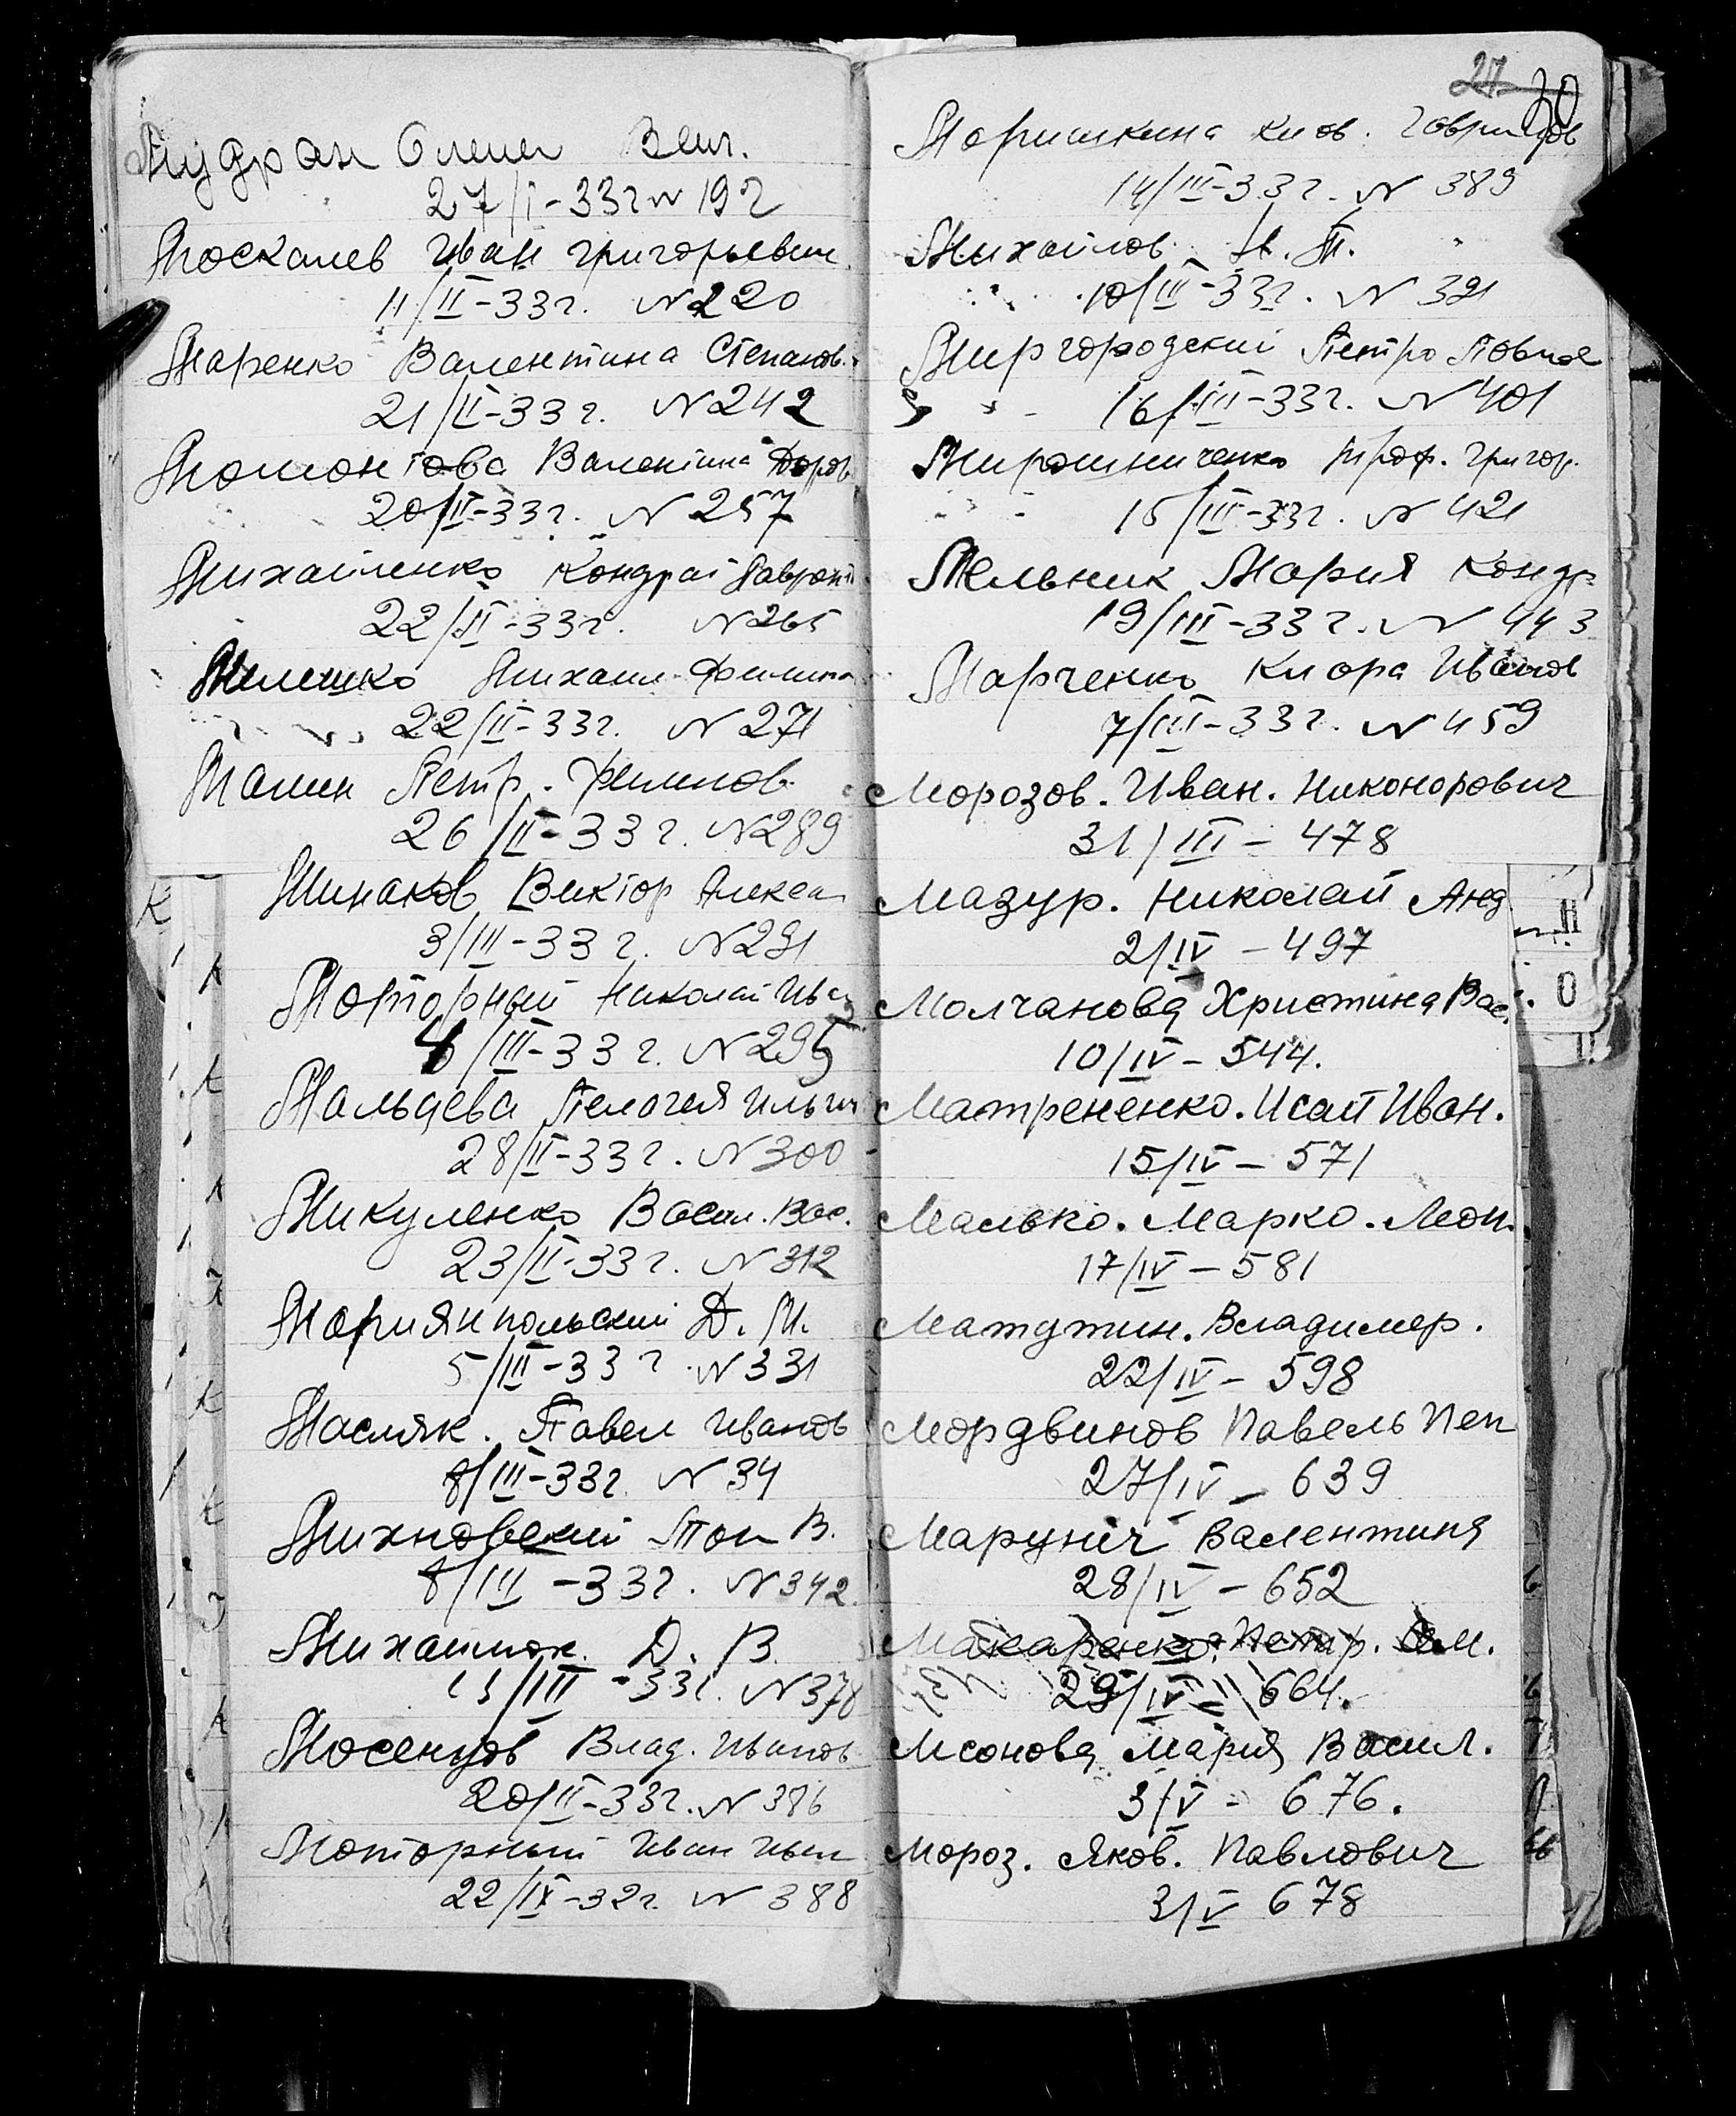 Мудран Олена Вен.
27/I-33г N 192
Москалев Иван Григорьевич
11/II-33г. N 220
Маренко Валентина Степанов.
21/II-33г. N 242
Валентина
20/II-33г. N 257
Михайленко Кондрат
22/II-33г. N 265
Милешко Михаил Филип
22/II-33г. N 271
Петр. Филипов.
26/II-33г. N 289
Минаков Виктор Алекса
3/III-33г. N 291
Моторный Николай Иван
/III-33г. N 295
Мальцева Пелагея Ильин
28/II-33г. N 300
Микуленко Васил. Вас.
23/II-33г. N 312
Мариянпольский Д. М.
5/III-33г. N 331
Масляк. Павел Иванов
8/III-33г. N 34
Михновский В.
8/III-33г. N 342.
Михайлюк. Д. В.
/III-33г. N 378
Мосенцов Влад. Иванов
20/II-33г. N 386
Моторный Иван Иван
22/IX-32г. N 388
27 30
Маришкина Клав. Гаврилов
14/III-33г. N 389
Михайлов
10/III-33г. N 391
Миргородский Петро Павлов
16/III-33г. N 401
Мирошниченко Троф. Григор.
15/III-33г. N 421
Мельник Мария Кондр
19/III-33г. N 443
Марченко Клара Иванов
7/III-33г. N 459
Морозов. Иван. Никонорович
31/III - 478
Мазур. Николай Анд
2/IV - 497
Молчанова Христина Вас.
10/IV - 544.
Матрененко. Исай Иван.
15/IV - 571
Малько. Марко. Леон.
17/IV - 581
Владимер.
22/IV - 598
Мордвинов Павель Пеп
27/IV - 639
Маруніч Валентина
28/IV - 652
Макаренко. Петр. Сем.
29/IV - 664.
Мсонова Мария Васил.
3/V - 676.
Мороз. Яков. Павлович
3/V 678